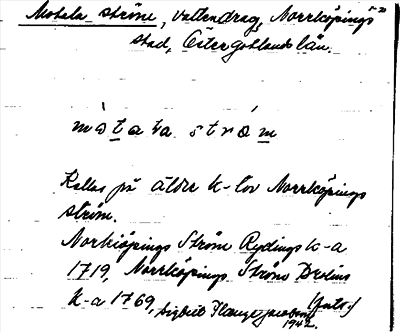 Motala ström, vattendrag, Norrköpings
stad, Östergötlands län.
mòtata stróm
Kallas på äldre k-tor Norrköpings
ström.
Norkiöpings Ström Rydings k-a
1719, Norrköpings Ströms Brolins
k-a 1769,
1942.